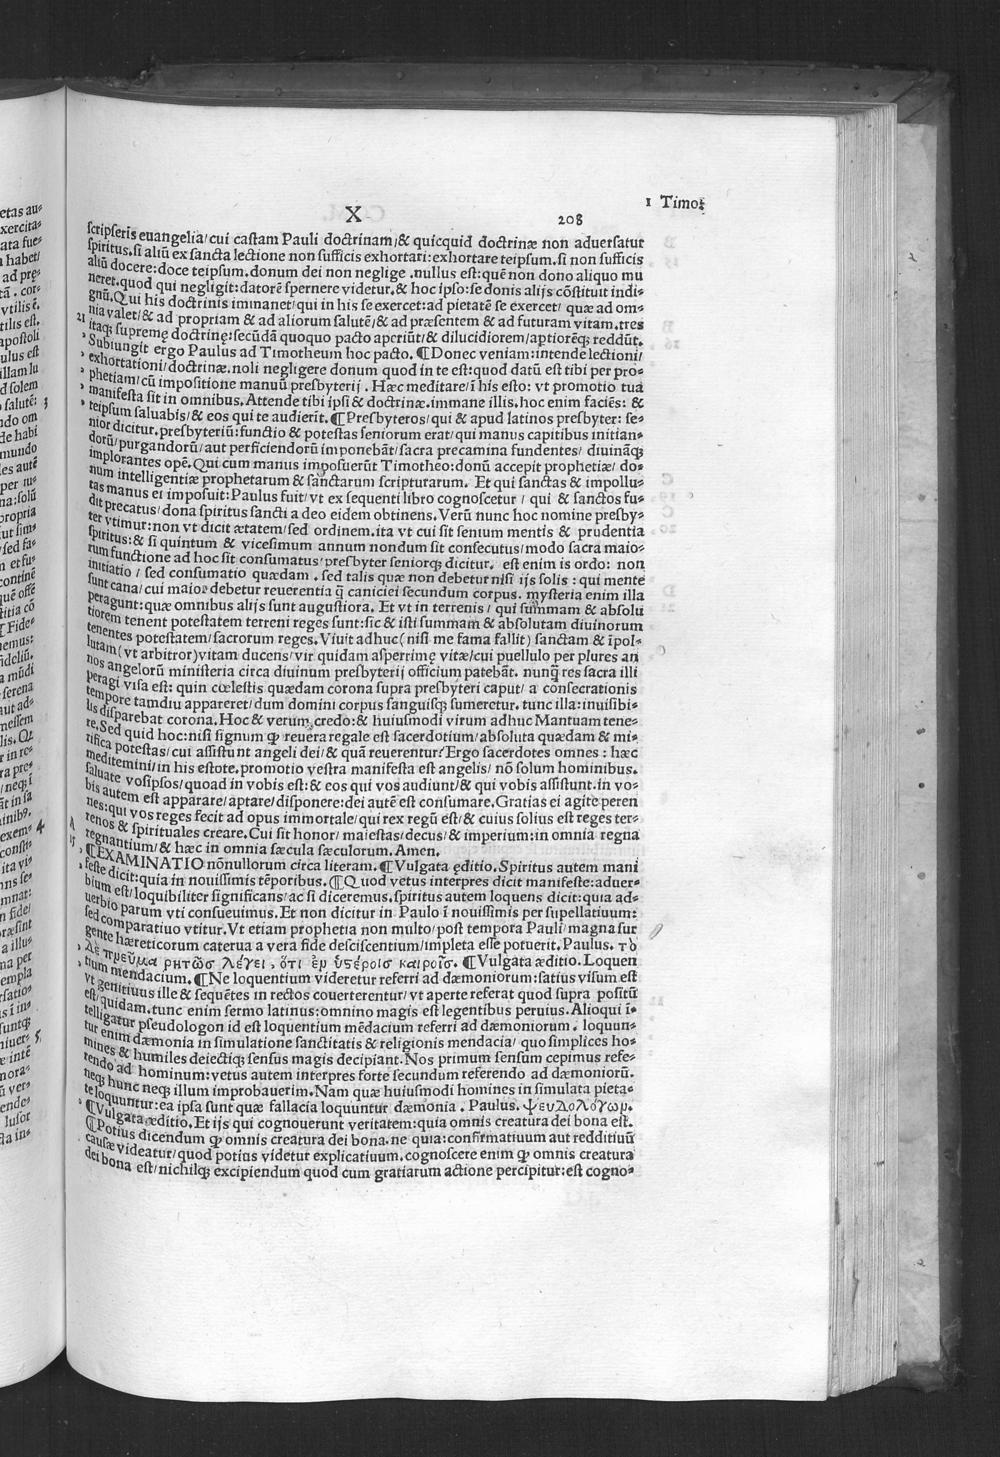 1 Timoꝫ
X
208
scripseris euangelia/cui castam Pauli doctrinam/& quicquid doctrinæ non aduersatur
spiritus.si aliū ex sancta lectione non sufficis exhortari:exhortare teipsum.si non sufficis
aliū docere:doce teipsum.donum dei non neglige .nullus est:quē non dono aliquo mu
neret.quod qui negligit:datorē spernere videtur.& hoc ipso:se donis alijs cōstituit indi⸗
gnū.Qui his doctrinis immanet/qui in his se exercet:ad pietatē se exercet/ quæ ad om⸗
nia valet/& ad propriam & ad aliorum salutē/& ad præsentem & ad futuram vitam.tres
21 itaqꝫ supremę doctrinę:secūdā quoquo pacto aperiūt/& dilucidiorem/aptiorēqꝫ reddūt.
Subiungit ergo Paulus ad Timotheum hoc pacto. ¶Donec veniam:intende lectioni/
exhortationi/doctrinæ.noli negligere donum quod in te est:quod datū est tibi per pro⸗
phetiam/cū impositione manuū presbyterij . Hæc meditare/ī his esto: vt promotio tua
manifesta sit in omnibus.Attende tibi ipsi & doctrinæ.immane illis.hoc enim faciēs: &
teipsum saluabis/& eos qui te audierīt.¶Presbyteros/qui & apud latinos presbyter: se⸗
nior dicitur.presbyteriū:functio & potestas seniorum erat/qui manus capitibus initian⸗
dorū/purgandorū/aut perficiendorū imponebāt/sacra precamina fundentes/ diuināqꝫ
implorantes opē.Qui cum manus imposuerūt Timotheo:donū accepit prophetiæ/ do⸗
num intelligentiæ prophetarum & sanctarum scripturarum. Et qui sanctas & impollu⸗
tas manus ei imposuit:Paulus fuit/vt ex sequenti libro cognoscetur / qui & sanctos fu⸗
dit precatus/dona spiritus sancti a deo eidem obtinens.Verū nunc hoc nomine presby⸗
ter vtimur:non vt dicit ætatem/sed ordinem.ita vt cui sit senium mentis & prudentia
spiritus:& si quintum & vicesimum annum nondum sit consecutus/modo sacra maio⸗
rum functione ad hoc sit consumatus/presbyter seniorqꝫ dicitur. est enim is ordo: non
initiatio / sed consumatio quædam . sed talis quæ non debetur nisi ijs solis : qui mente
sunt cana/cui maior debetur reuerentia q̄ caniciei secundum corpus. mysteria enim illa
peragunt:quæ omnibus alijs sunt augustiora. Et vt in terrenis / qui summam & absolu
tiorem tenent potestatem terreni reges sunt:sic & isti summam & absolutam diuinorum
tenentes potestatem/sacrorum reges.Viuit adhuc(nisi me fama fallit) sanctam & īpol⸗
lutam(vt arbitror)vitam ducens/vir quidam asperrimę vitæ/cui puellulo per plures an
nos angelorū ministeria circa diuinum presbyterij officium patebāt. nunq̄ res sacra illi
peragi visa est: quin cœlestis quædam corona supra presbyteri caput/ a consecrationis
tempore tamdiu appareret/dum domini corpus sanguisqꝫ sumeretur. tunc illa:inuisibi⸗
lis disparebat corona.Hoc & verum credo:& huiusmodi virum adhuc Mantuam tene⸗
re.Sed quid hoc:nisi signum ꝙ reuera regale est sacerdotium/absoluta quædam & mi⸗
rifica potestas/cui assistunt angeli dei/& quā reuerentur?Ergo sacerdotes omnes : hæc
meditemini/in his estote.promotio vestra manifesta est angelis/ nō solum hominibus.
saluate vosipsos/quoad in vobis est:& eos qui vos audiunt/& qui vobis assistunt.in vo⸗
bis autem est apparare/aptare/disponere:dei autē est consumare.Gratias ei agite peren
nes:qui vos reges fecit ad opus immortale/qui rex regū est/& cuius solius est reges ter⸗
renos & spirituales creare.Cui sit honor/maiestas/decus/& imperium:in omnia regna
regnantium/& hæc in omnia sæcula sæculorum.Amen.
¶EXAMINATIO nōnullorum circa literam.¶Vulgata ęditio.Spiritus autem mani
feste dicit:quia in nouissimis tēporibus.¶Quod vetus interpres dicit manifeste:aduer⸗
bium est/loquibiliter significans/ac si diceremus.spiritus autem loquens dicit:quia ad⸗
uerbio parum vti consueuimus.Et non dicitur in Paulo ī nouissimis per supellatiuum:
sed comparatiuo vtitur.Vt etiam prophetia non multo/post tempora Pauli/magna sur
gente hæreticorum caterua a vera fide desciscentium/impleta esse potuerit.Paulus. τὸ
δὲ πρεῦμα ρητῶσ λέγει , ὁτι ἐν ὑστέροισ καιροῖσ. ¶Vulgata æditio.Loquen
tium mendacium.¶Ne loquentium videretur referri ad dæmoniorum:satius visum est
vt genitiuus ille & sequētes in rectos couerterentur/vt aperte referat quod supra positū
est/quidam.tunc enim sermo latinus:omnino magis est legentibus peruius.Alioqui ī⸗
telligatur pseudologon id est loquentium mēdacium referri ad dæmoniorum . loquun⸗
tur enim dæmonia in simulatione sanctitatis & religionis mendacia/ quo simplices ho⸗
mines & humiles deiectiqꝫ sensus magis decipiant.Nos primum sensum cepimus refe⸗
rendo ad hominum:vetus autem interpres forte secundum referendo ad dæmoniorū.
neqꝫ hunc neqꝫ illum improbauerim.Nam quæ huiusmodi homines in simulata pieta⸗
te loquuntur:ea ipsa sunt quæ fallacia loquuntur dæmonia . Paulus. ψευδολόγων.
¶Vulgata æditio.Et ijs qui cognouerunt veritatem:quia omnis creatura dei bona est.
¶Potius dicendum ꝙ omnis creatura dei bona.ne quia:confirmatiuum aut redditiuū
causæ videatur/quod potius videtur explicatiuum.cognoscere enim ꝙ omnis creatura
dei bona est/nichilqꝫ excipiendum quod cum gratiarum actione percipitur:est cogno⸗